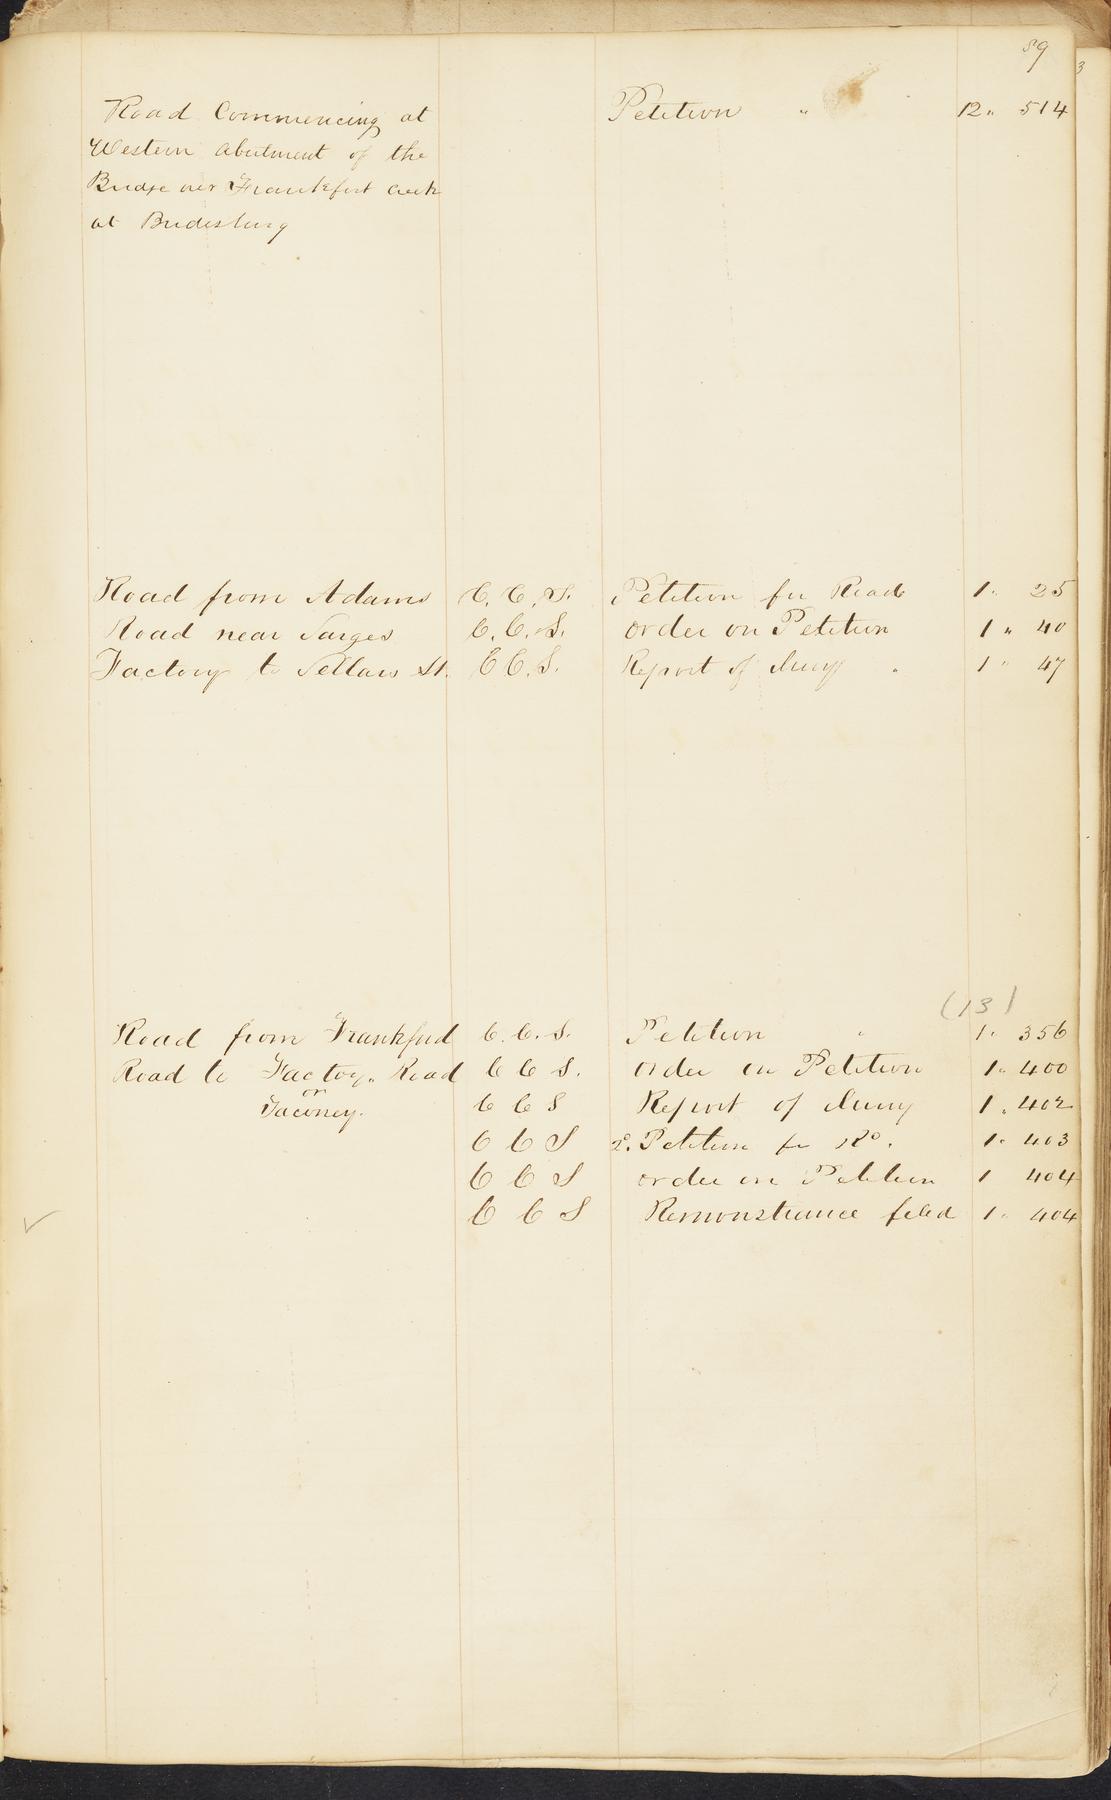 89
Road Commencing at Petition " 12 " 514
Western abutment of the
Bridge over Frankfort Creek
at Bridesburg
Road from Adams C. C. S. Petition for Road 1 " 25
Road near Sarges C. C. S. order on Petition 1 " 40
Factory to Sellars St. C C. S. Report of Jury " 1 " 47
(13)
Road from Frankford C. C. S. Petition " 1 " 356
Road to Factory. Road C C S. order on Petition 1 " 400
or
Taconey. C C S Report of Jury 1 " 402
C C S 2d. Petition for Rd. 1 " 403
C C S order on Petition 1 404
✓ C C S Remonstrance filed 1 " 404